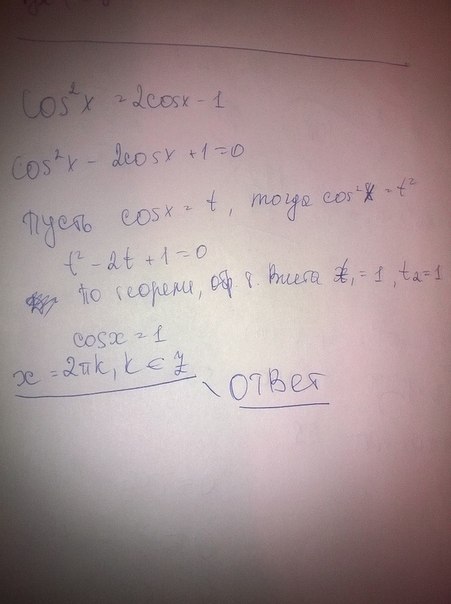 cos²x = 2cosx - 1
cos²x - 2cosx + 1 = 0
Пусть cosx = t, тогда cos²x = t²
t² - 2t + 1 = 0
По теореме, обр т. Виета t₁ = 1, t₂ = 1
cosx = 1
x = 2πk, k ∈ Z
ответ